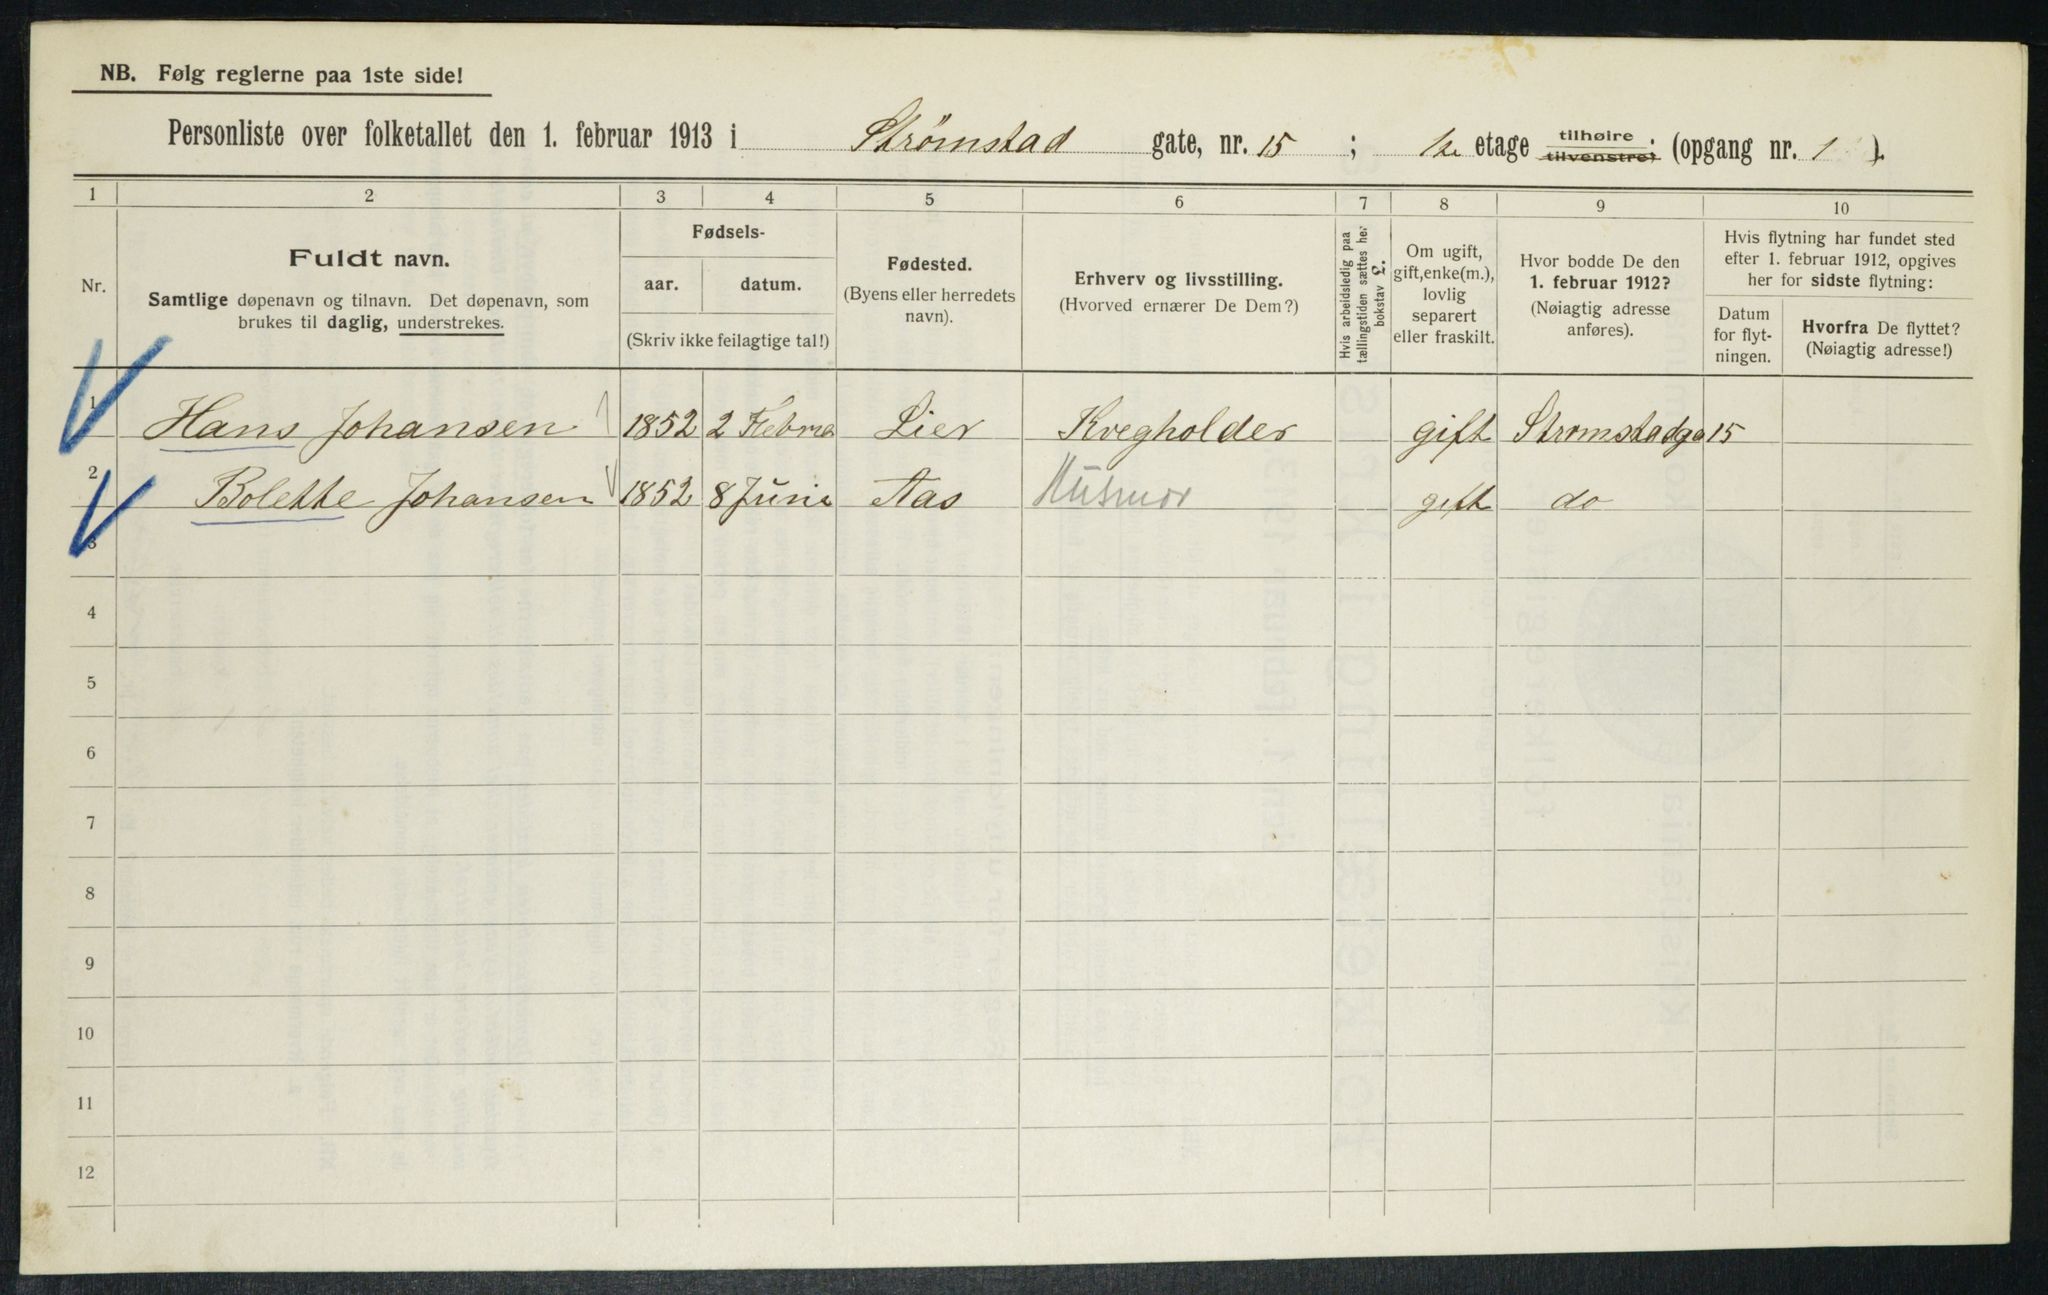 NB. Følg reglerne paa 1ste side!
Personliste over folketallet den 1. februar 1913 i Strømstad gate, nr. 15 ; 1ste etage tilhøire tilvenstre: (opgang nr. 1 ).
1 2 3 4 5 6 7 8 9 10
Nr.
Fuldt navn.
Samtlige døpenavn og tilnavn. Det døpenavn, som
brukes til daglig, understrekes.
Fødsels-
aar. datum.
(Skriv ikke feilagtige tal!)
Fødested.
(Byens eller herredets
navn).
Erhverv og livsstilling.
(Hvorved ernærer De Dem?)
Hvis arbeidsledig paa
tællingstiden sættes her
bokstav L.
Om ugift,
gift, enke(m.),
lovlig
separert
eller fraskilt.
Hvor bodde De den
1. februar 1912?
(Nøiagtig adresse
anføres).
Hvis flytning har fundet sted
efter 1. februar 1912, opgives
her for sidste flytning:
Datum
for flyt-
ningen.
Hvorfra De flyttet?
(Nøiagtig adresse!)
1 Hans Johansen 1852 2 Febru Lier Kvegholder gift Strømstadga 15
2 Bolette Johansen 1852 8 Juni Aas Husmor gift do
3
4
5
6
7
8
9
10
11
12